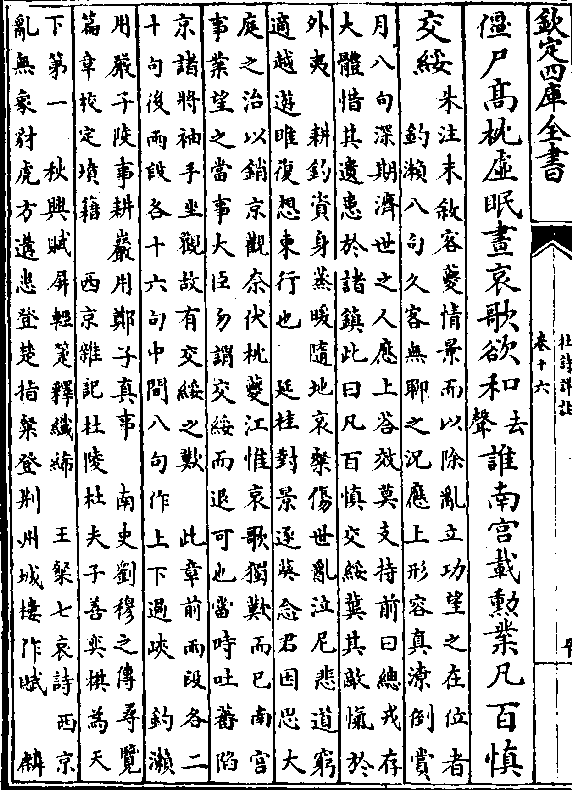 欽定四庫全書
杜詩詳註
卷十六
僵尸髙枕虛眠晝哀歌欲和去聲誰南宫載勲業凡百慎
交綏
朱注末敘客夔情景而以除亂立功望之在位者
釣瀨八句久客無聊之況應上形容真潦倒賞
月八句深期濟世之人應上答效莫支持前曰總戎存
大體惜其遺患於諸鎮此曰凡百慎交綏冀其敵愾於
外夷　耕釣資身蒸暖隨地哀樂傷世亂泣尼悲道窮
適越遊唯復想東行也　延桂對景逐英念君因思大
庭之治以銷京觀奈伏枕夔江惟哀歌獨歎而已南宫
事業望之當事大臣勿謂交綏而退可也當時吐蕃陷
京諸將袖手坐觀故有交綏之歎　此章前兩段各二
十句後兩段各十六句中間八句作上下過峽　釣瀨
用嚴子陵事耕巖用鄭子真事　南史劉穆之傳尋覽
篇章校定墳籍　西京雜記杜陵杜夫子善奕棋為天
下第一　秋興賦屏輕箑釋纖絺　王粲七哀詩西京
亂無象豺虎方遘患登楚指粲登荆州城樓作賦　麟